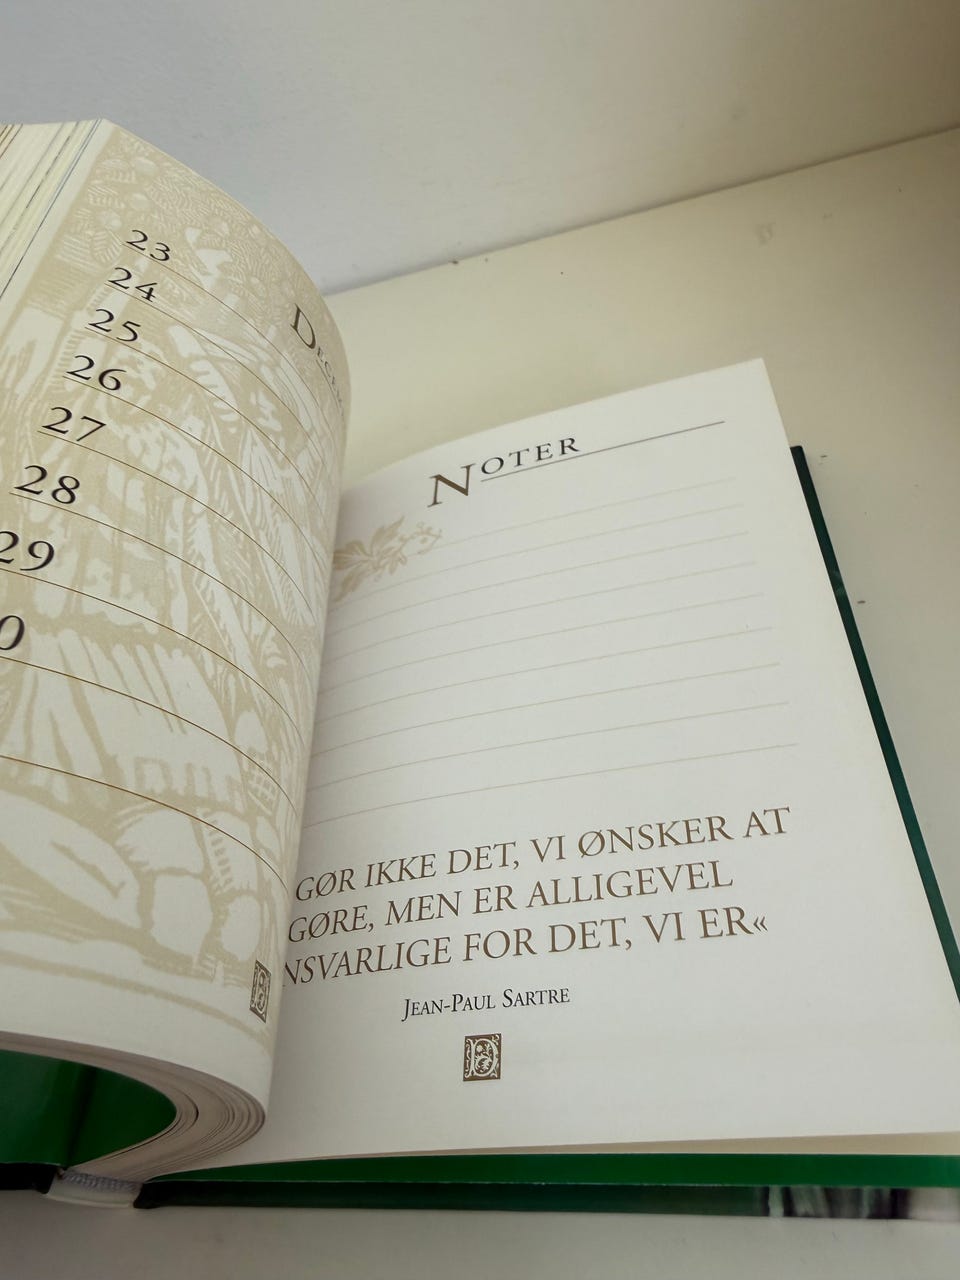 23
24
25
26
27
28
29
0
NOTER
GØR IKKE DET, VI ØNSKER AT
GØRE, MEN ER ALLIGEVEL
NSVARLIGE FOR DET, VI ER«
JEAN-PAUL SARTRE